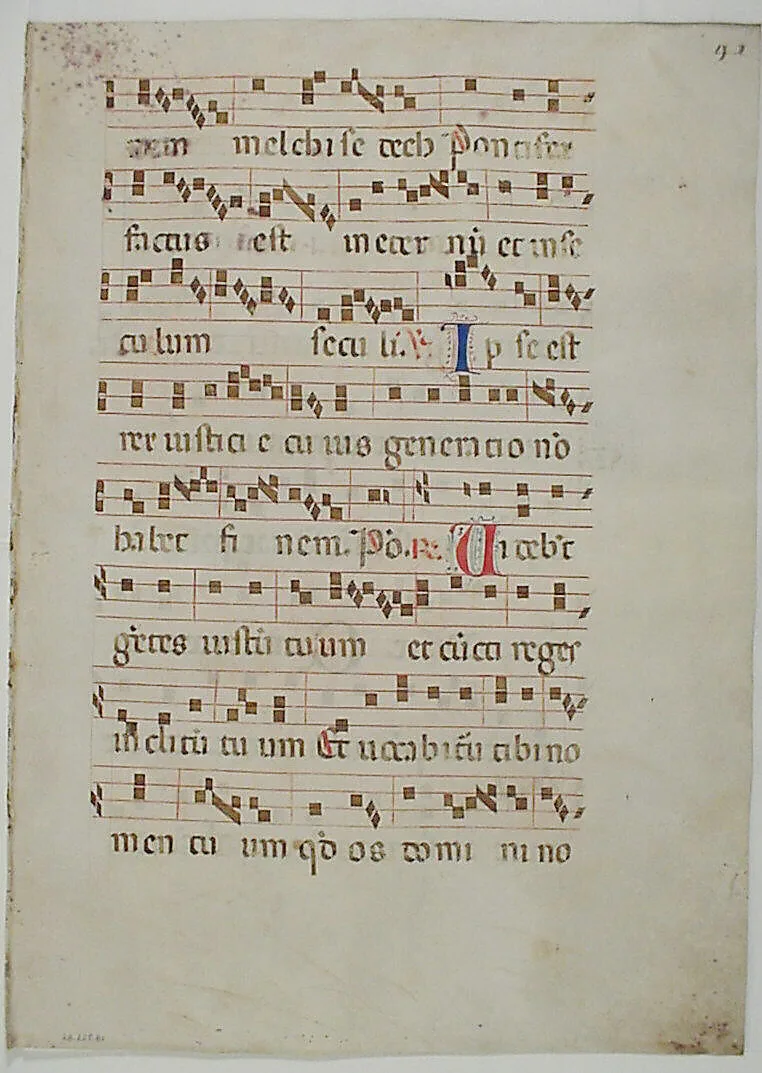 nem melchise dech Pontifex
factus est in eter nũ et in se
cu lum secu li. ℣. I p se est
rex iusticie cu ius generatio nõ
habet fi nem. Põ. ℟. Uidebt̃
gẽtes iustũ tuum et cũcti reges
inclitũ tu um Et uocabitũ tibi no
men tu um qđ os domi ni no